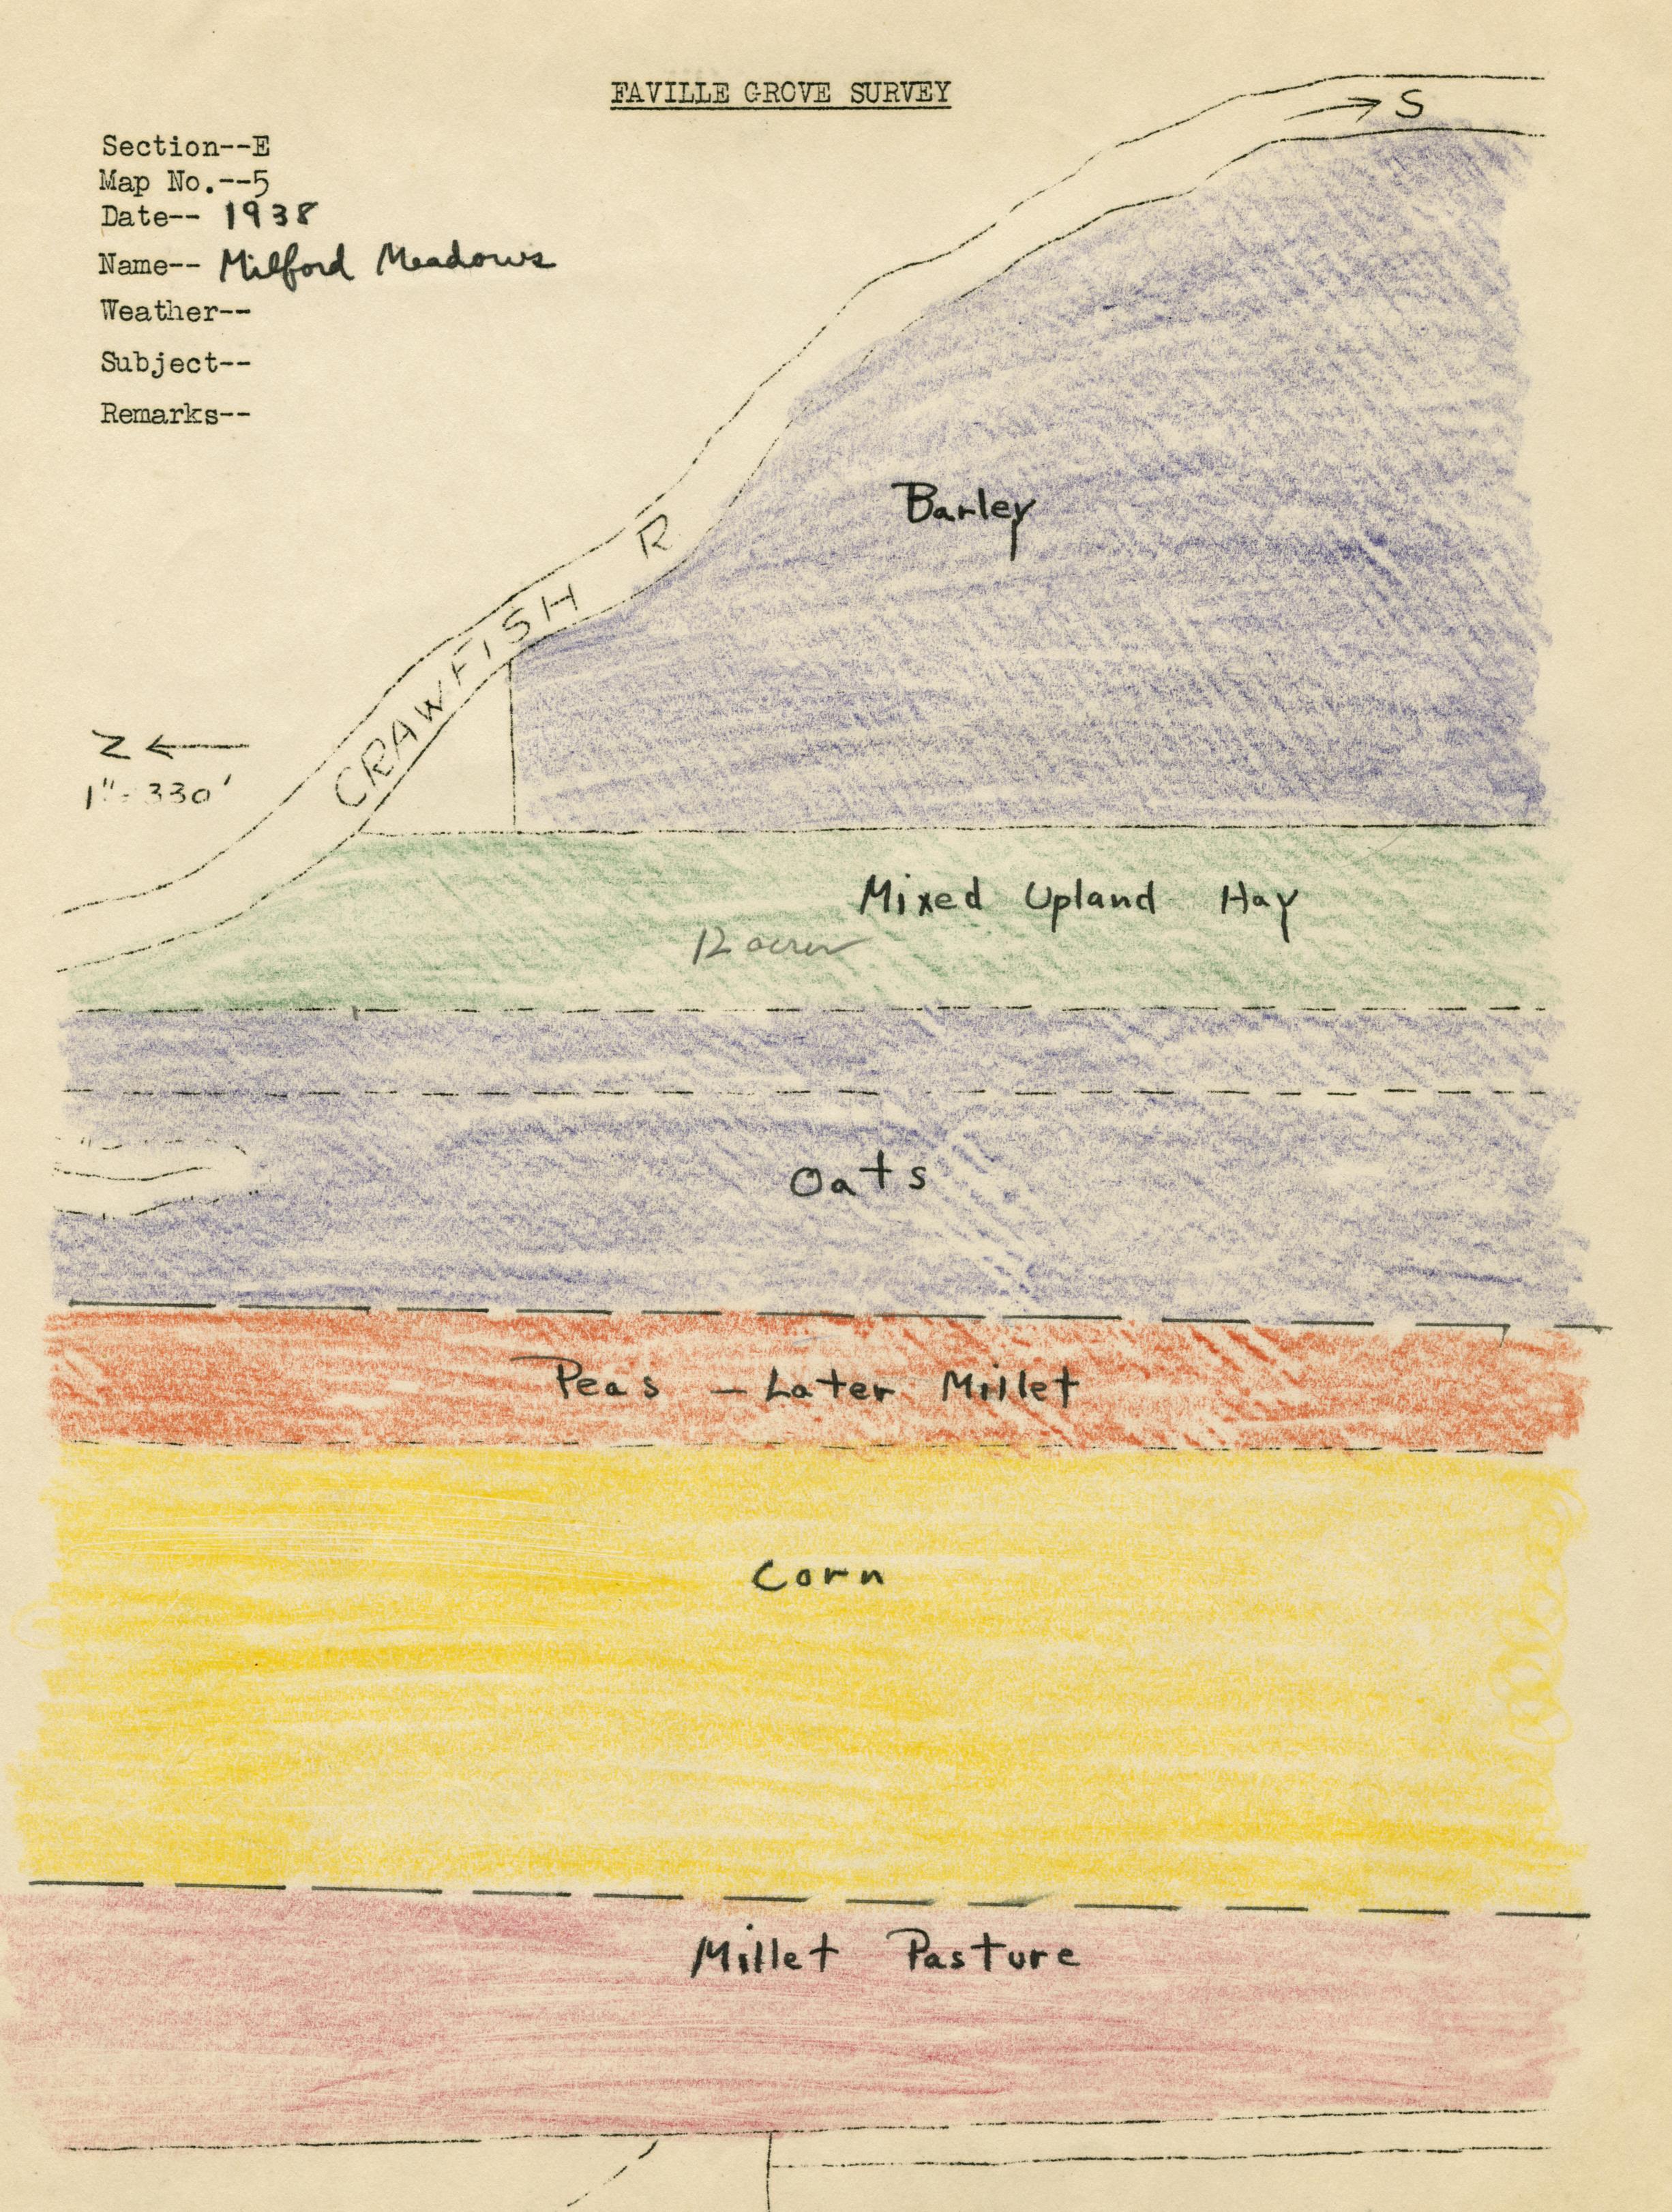 FAVILLE GROVE SURVEY
S
Section--E
Map No.--5
Date-- 1938
Name-- Milford Meadows
Weather--
Subject--
Remarks--
Barley
CRAWFISH R
N
1"=330'
Mixed Upland Hay
12 acres
Oats
Peas - Later Millet
Corn
Millet Pasture